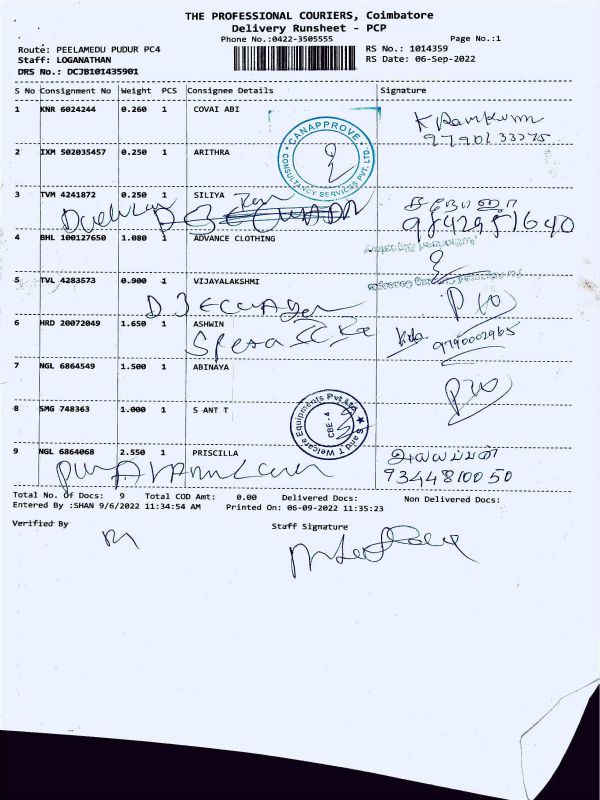 THE PROFESSIONAL COURIERS, Coimbatore
Delivery Runsheet - PCP
Phone No.:0422-3505555
Page No.:1
Route: PEELAMEDU PUDUR PC4
RS No.: 1014359
Staff: LOGANATHAN
RS Date: 06-Sep-2022
DRS No.: DCJB101435901
S No Consignment No Weight PCS Consignee Details Signature
1 KNR 6024244 0.260 1 COVAI ABI
K Ramkumar
9790133775
CANAPPROVE
CONSULTANCY SERVICES PVT. LTD.
2 IXM 502035457 0.250 1 ARITHRA
3 TVM 4241872 0.250 1 SILIYA
9842951640
4 BHL 100127650 1.080 1 ADVANCE CLOTHING
5 TVL 4283573 0.900 1 VIJAYALAKSHMI
6 HRD 20072049 1.650 1 ASHWIN
9790002965
7 NGL 6864549 1.500 1 ABINAYA
8 SMG 748363 1.000 1 S ANT T
S and T Welcare Equipments Pvt Ltd
CBE-4
9 NGL 6864068 2.550 1 PRISCILLA
9344810050
Total No. of Docs: 9 Total COD Amt: 0.00 Delivered Docs: Non Delivered Docs:
Entered By :SHAN 9/6/2022 11:34:54 AM Printed On: 06-09-2022 11:35:23
Verified By Staff Signature